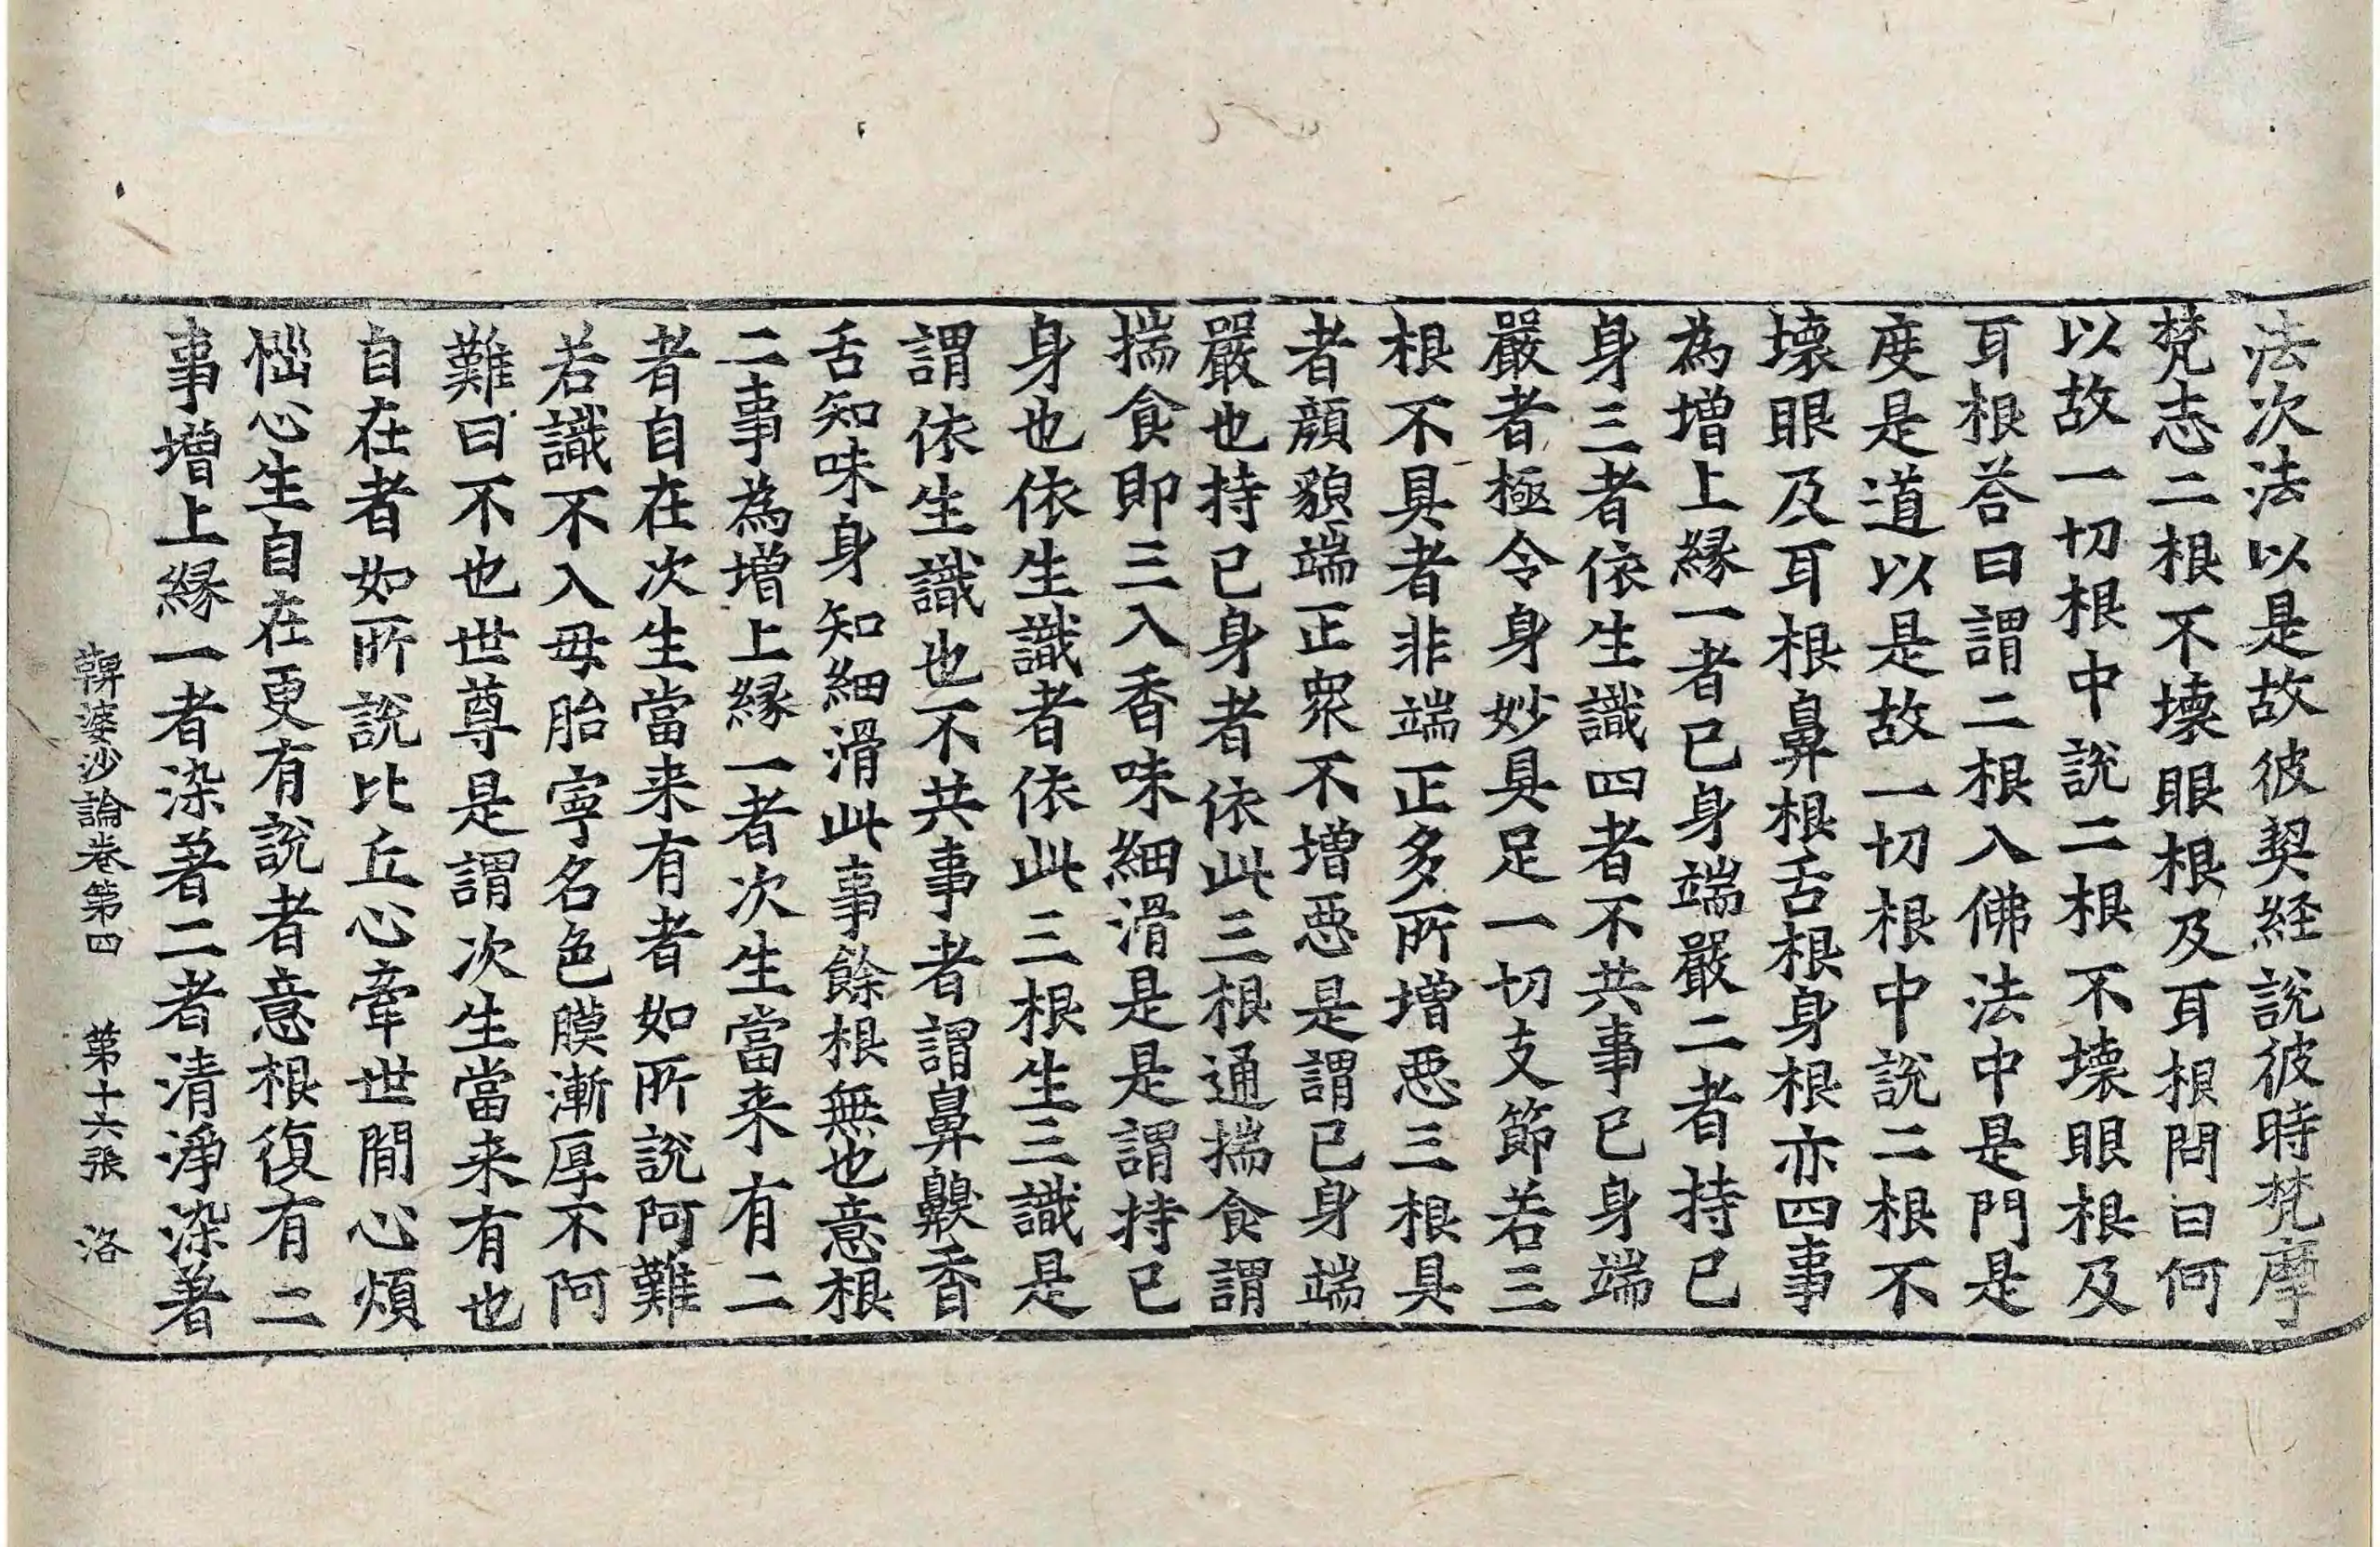 法次法以是故彼契経說彼時梵摩
梵志二根不壞眼根及耳根問曰何
以故一切根中說二根不壞眼根及
耳根荅曰謂二根入佛法中是門是
度是道以是故一切根中說二根不
壞眼及耳根鼻根舌根身根亦四事
為增上緣一者已身端嚴二者持已
身三者依生識四者不共事已身端
嚴者極令身妙具足一切支節若三
根不具者非端正多所增惡三根具
者顔貌端正衆不增惡是謂已身端
嚴也持已身者依此三根通揣食謂
揣食即三入香味細滑是是謂持已
身也依生識者依此三根生三識是
謂依生識也不共事者謂鼻齅香
舌知味身知細滑此事餘根無也意根
二事為增上緣一者次生當来有二
者自在次生當来有者如所說阿難
若識不入母胎寧名色膜漸厚不阿
難曰不也世尊是謂次生當来有也
自在者如所說比丘心牽世間心煩
惱心生自在更有說者意根復有二
事增上緣一者染著二者清淨染著
鞞婆沙論卷第四 第十六張 洛